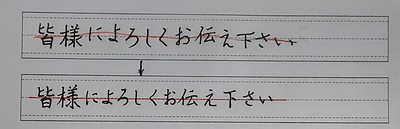 皆様によろしくお伝え下さい
皆様によろしくお伝え下さい